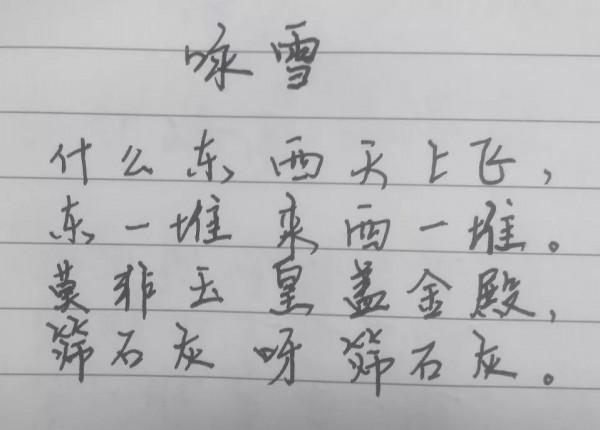 咏雪
什么东西天上飞，
东一堆来西一堆。
莫非玉皇盖金殿，
筛石灰呀筛石灰。